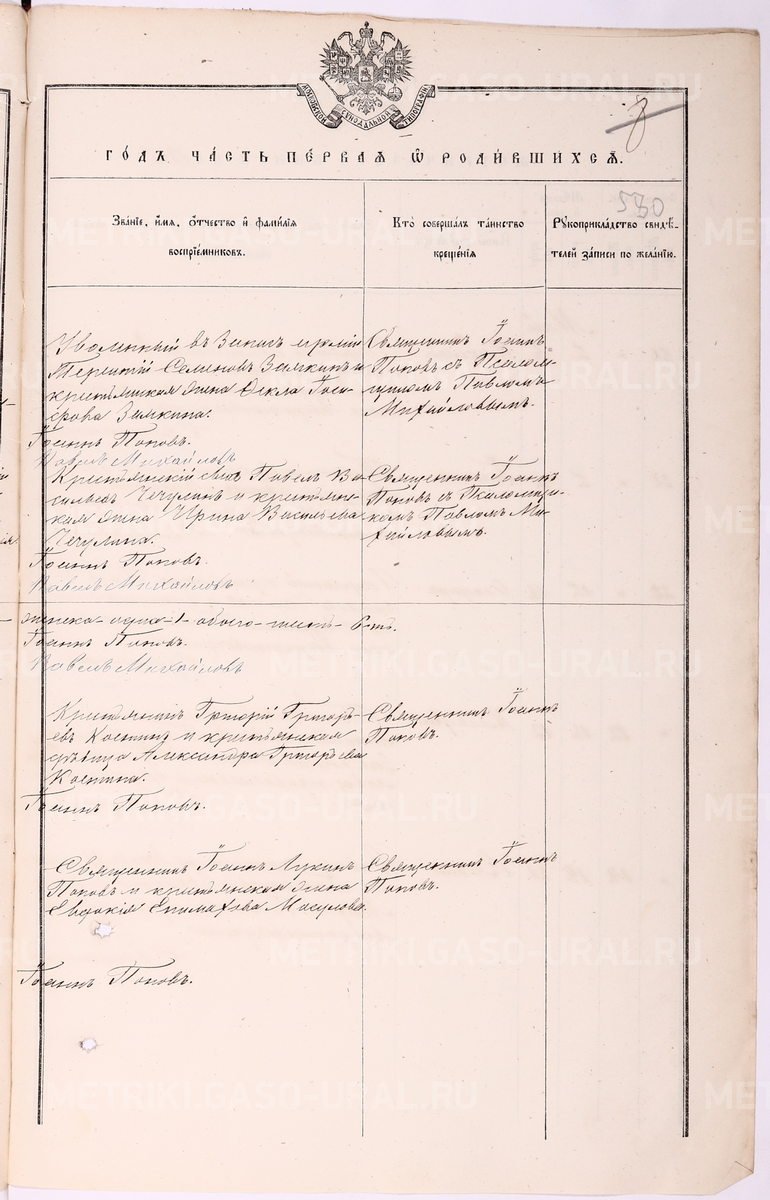 МОСКОВСКОЙ СѴНОДАЛЬНОЙ ТИПОГРАФІИ
8
ГО́ДЪ ЧА́СТЬ ПЕ́РВАЯ Ѡ РОДИ́ВШИХСЯ.
530
Зва́ніе, и҆́мя, ѻ҆́тчество и҆ фами́лія
воспріе́мниковъ.
Кто̀ соверша́лъ та́инство
креще́нія
Рꙋкоприкла́дство свидѣ́-
телей за́писи по жела́нію.
Уволенный въ Запасъ арміи
Терентій Семеновъ Замкинъ и
крестьянская жена Ѳекла
Замкина.
Іоаннъ Поповъ.
Павелъ Михайловъ
Священникъ Іоаннъ
Поповъ съ Псалом-
щикомъ Павломъ
Михайловымъ.
Крестьянскій сынъ Павелъ Ва-
сильевъ Чечулинъ и крестьянс-
кая жена Ирина Васильева
Чечулина.
Іоаннъ Поповъ.
Павелъ Михайловъ
Священникъ Іоаннъ
Поповъ съ Псаломщи-
комъ Павломъ Ми-
хайловымъ.
женска - одна - 1 - обоего - шесть - 6-ть.
Іоаннъ Поповъ.
Павелъ Михайловъ
Крестьянинъ Григорій Григорь-
евъ Костинъ и крестьянская
дѣвица Александра Григорьева
Костина.
Іоаннъ Поповъ.
Священникъ Іоаннъ
Поповъ.
Священникъ Іоаннъ Лукинъ
Поповъ и крестьянская жена
Евдокія Епимахова
Іоаннъ Поповъ.
Священникъ Іоаннъ
Поповъ.
METRIKI.GASO-URAL.RU